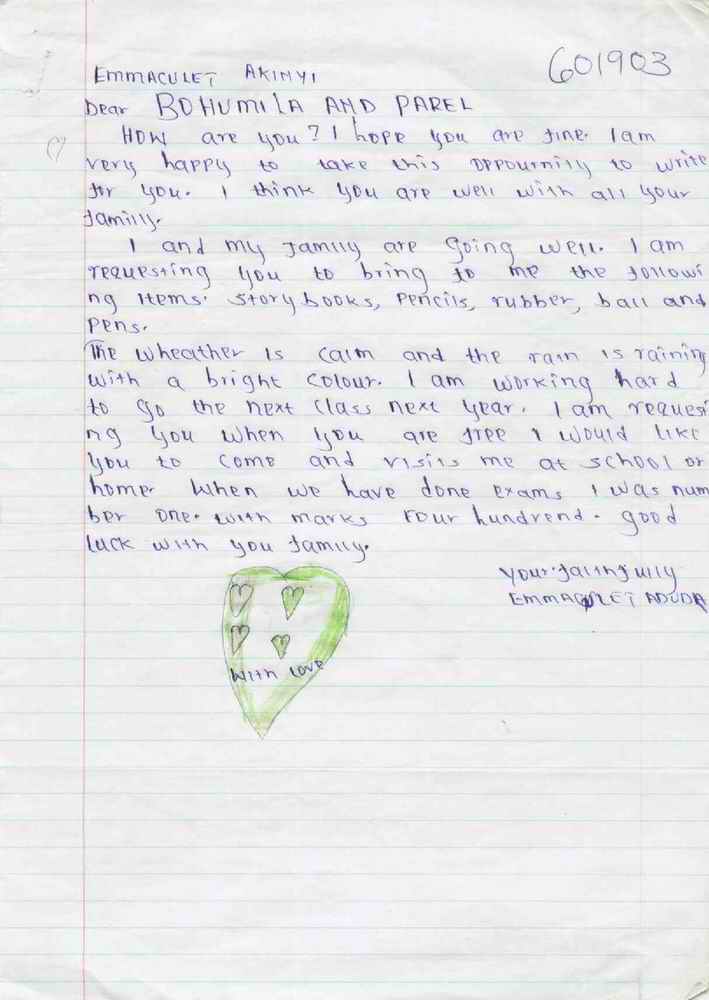 601903
EMMACULET AKINYI
Dear BOHUMILA AND PAREL
HOW are you? I hope you are fine. I am
very happy to take this oppournity to write
for you. I think you are well with all your
familly.
I and my family are going well. I am
requesting you to bring to me the followi
ng items. storybooks, pencils, rubber, ball and
pens.
The wheather is calm and the rain is raining
with a bright colour. I am working hard
to go the next class next year. I am request
ng you when you are free I would like
you to come and visits me at school or
home. When we have done exams I was num
ber one. with marks four hundrend. good
luck with you family.
your faithfully
EMMACULET ADUDA
With love